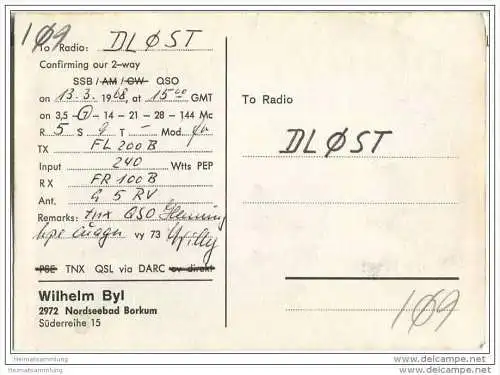 109
To Radio: DLØST
Confirming our 2-way
SSB / AM / CW QSO
on 13.3. 1968, at 15⁰⁰ GMT
on 3,5 - 7 - 14 - 21 - 28 - 144 Mc
R 5 S 9 T - Mod.
TX FL 200 B
Input 240 Wtts PEP
RX FR 100 B
Ant. G 5 RV
Remarks: tnx QSO Henning
hpe cuagn vy 73 Willy
PSE TNX QSL via DARC ov direkt
Wilhelm Byl
2972 Nordseebad Borkum
Süderreihe 15
To Radio
DLØST
109
Heimatsammlung
http://www.ansichtskarten-center.de
Heimatsammlung
http://www.ansichtskarten-center.de